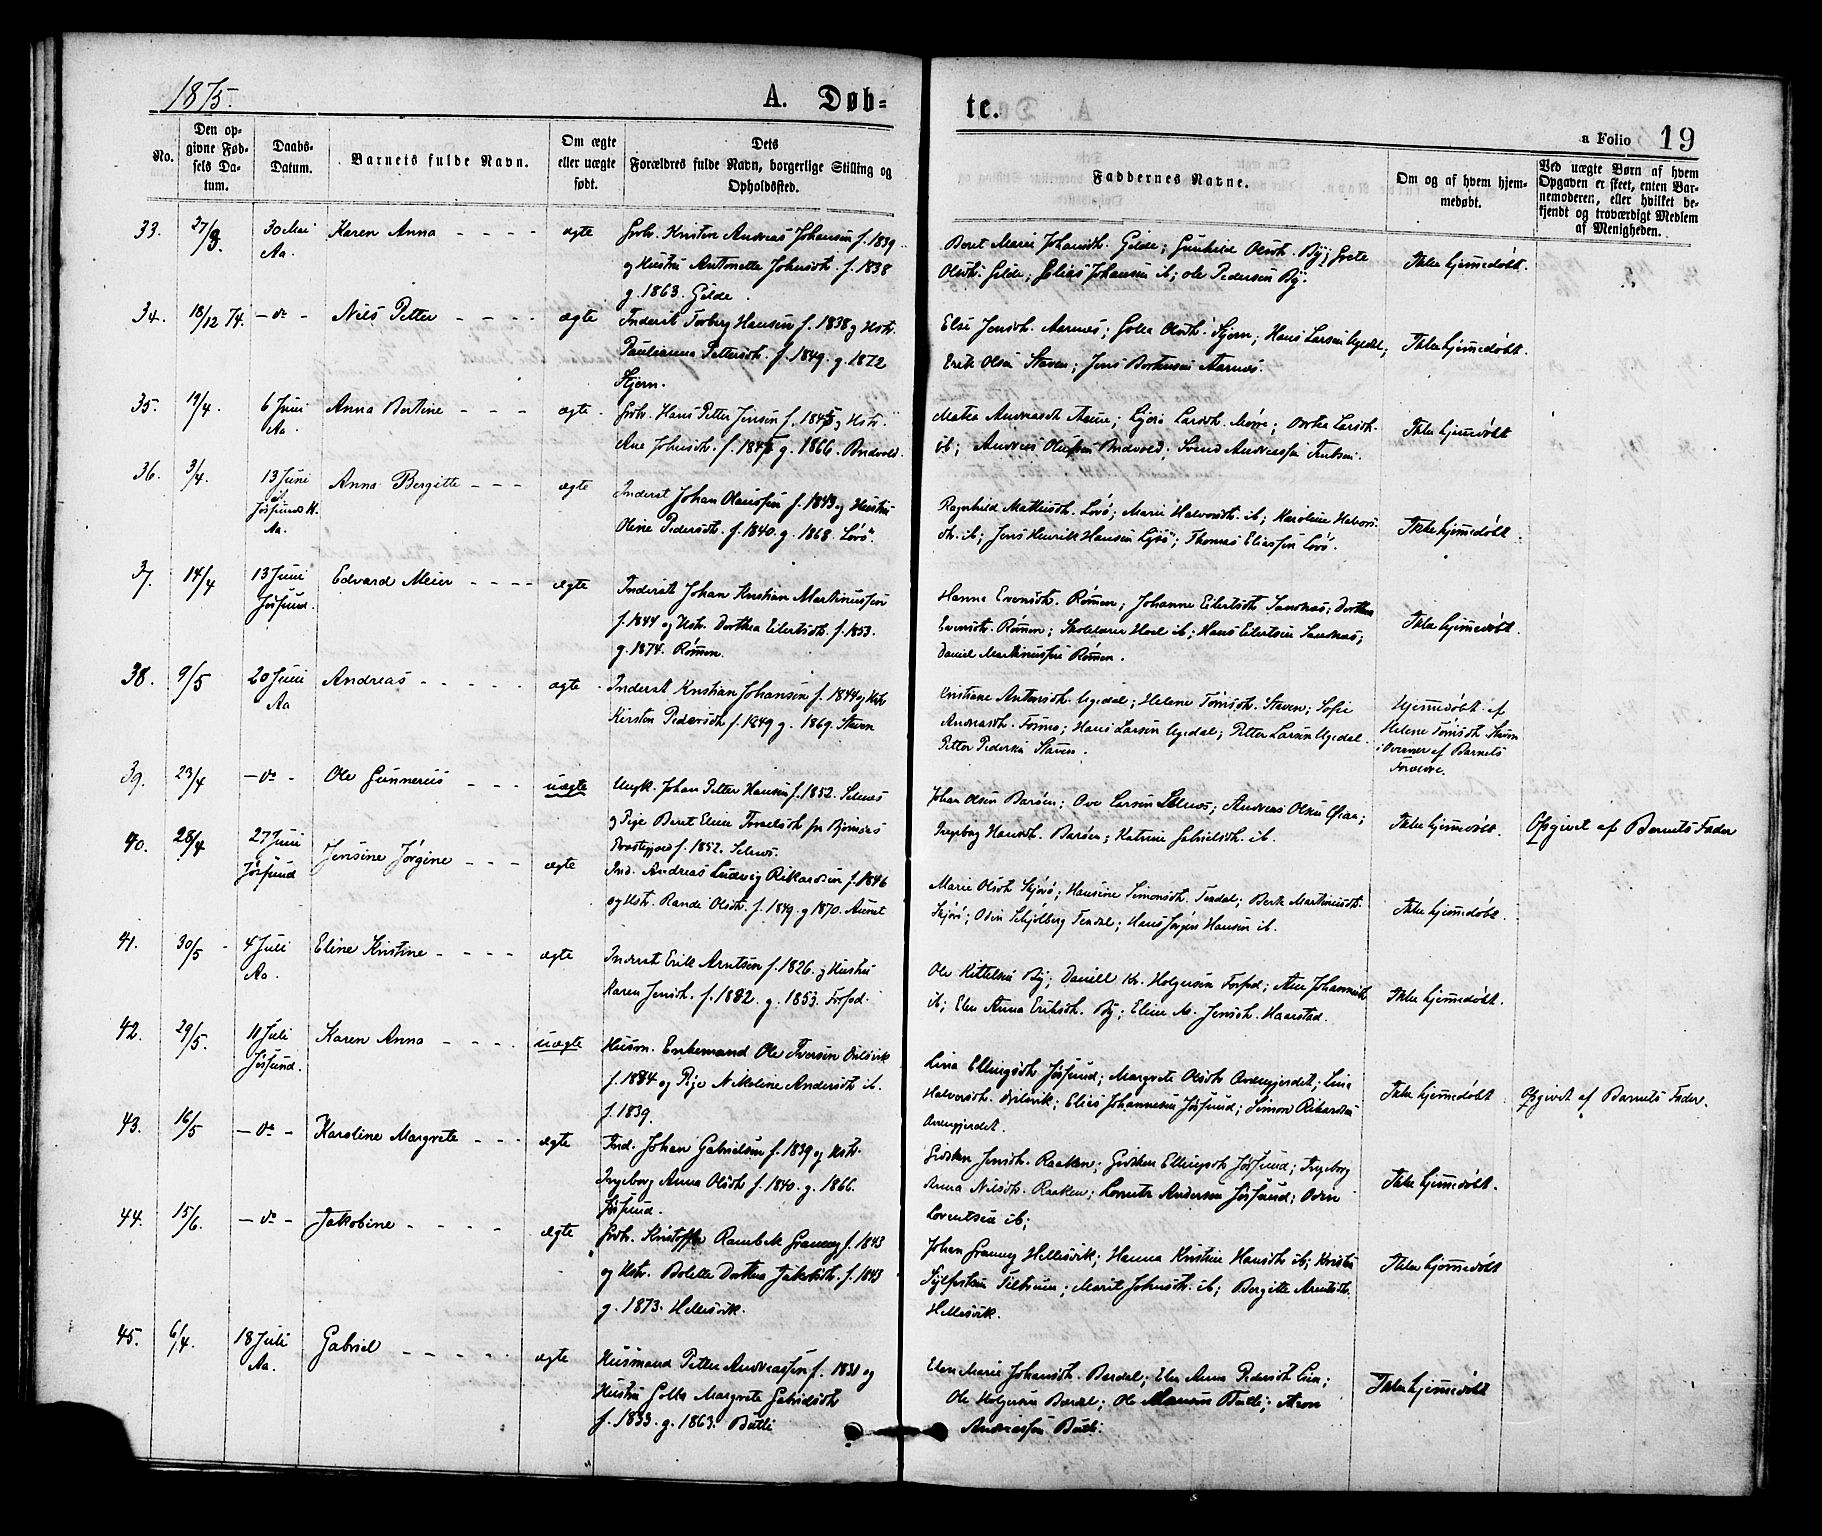 1875.
A. Døb=
te.
a Folio 19
No.
Den op-
givne Fød-
sels Da-
tum.
Daabs-
Datum.
Barnets fulde Navn.
Om ægte
eller uægte
født.
Dets
Forældres fulde Navn, borgerlige Stilling og
Opholdssted.
Faddernes Navne.
Om og af hvem hjem-
medøbt.
Ved uægte Børn af hvem
Opgaven er skeet, enten Bar-
nemoderen, eller hvilket be-
kjendt og troværdigt Medlem
af Menigheden.
33. 27/3. 30 Mai Karen Anna ægte Grdb. Kristen Andreas Johansen f. 1839
Aa. og Hustru Antonette Johnsdtr. f. 1838
g. 1863. Gilde.
Beret Marie Johansdtr. Gilde; Gunhild Olsdtr. By; Grete
Olsdtr. Gilde; Elias Johansen ib; Ole Pedersen By.
Ikke hjemmedøbt.
34. 18/12 74. - do - Nils Petter ægte Inderst Torberg Hansen f. 1838 og Hstr.
Paulianna Pettersdtr. f. 1849. g. 1872
Stjern.
Else Jensdtr. Aarnes; Golla Olsdtr. Stjern; Hans Larsen Ugedal;
Erik Olsen Staven; Jens Bortensen Aarnes.
Ikke hjemmedøbt.
35. 19/4. 6 Juni Anna Bertine ægte. Grdb. Hans Petter Jensen f. 1845 og Hstr.
Aa. Ane Johnsdtr. f. 1845 g. 1866. Bredvold.
Andreasdtr. Larsdtr. Mørre; Larsdtr.
ib; Andreas Bredvold; Svend Andreassen
Ikke hjemmedøbt
36. 3/4. 13 Juni Anna Bergitte ægte Inderst Johan Olaussen f. 1843 og Hustru
i Jøssunds K. Oline Pedersdtr. f. 1840. g. 1868. Lovø.
Aa.
Ragnhild Mathisdtr. Lovø; Marie Halvorsdtr. ib; Karoline Halvors-
dtr. ib; Jens Henrik Hansen; Thomas Eliassen Lovø.
Ikke hjemmedøbt.
37. 14/4 13 Juni Edvard Meier ægte Inderst Johan Kristian Martinussen
Jøssund. f. 1844 og Hstr. Dorthea Eilertsdtr. f. 1853.
g. 1874. Rømen.
Hanna Evensdtr. Rømen; Johanne Eilertsdtr. Sandnæs; Dorthea
Evensdtr. Rømen; Skolelærer Hoel ib; Hans Eilertsen Sandnæs;
Daniel Martinussen Rømen.
Ikke hjemmedøbt.
38. 9/5 20 Juni Andreas ægte. Inderst Kristian Johansen f. 1844 og Hstr
Aa Kirsten Pedersdtr f. 1849 g. 1869. Staven
Kristiane Antonsdtr. Ugedal; Helene Tørrisdtr. Staven; Sofie
Andreasdtr. Fosnes; Hans Larsen Ugedal; Petter Larsen Ugedal.
Petter Pedersen Staven.
Hjemmedøbt af
Helene Tørrisdtr. Staven
i Overvær af Barnets
Forældre.
39. 23/4 - do - Ole Gunnerius uægte Ungk. Johan Petter Hansen f. 1852. Selnes
og Pige Beret Eline fra Bjørnørs
Præstegjæld f. 1852. Selnes.
Johan Olsen Barøen; Ove Larsen Selnes; Andreas Olsen;
Ingeborg Hansdtr. Barøen; Katrine Gabrielsdtr. ib.
Ikke hjemmedøbt. Opgivet af Barnets Fader
40. 28/4 27 Juni Jensine Jørgine ægte Ind. Andreas Ludvig Rikardsen f. 1846
Jøssund og Hstr. Randi Olsdtr. f. 1849. g 1870. Aunet
Marie Olsdtr Skjørø; Hansine Simonsdtr. Teksdal; Berit Martinusdtr.
Skjørø; Odin Schjølberg; Hans Jørgen Hansen ib.
Ikke hjemmedøbt.
41. 30/5 4 Juli Eline Kristine ægte Inderst Erik Arntsen f. 1826. og Hustru
Aa. Karen Jensdtr. f. 1832. g. 1853. Forfod.
Ole Kittelsen By; Daniel Kr. Holgersen Forfod; Ane Johannesdtr
ib; Elen Anna Eriksdtr. By; Eline M. Jensdtr. Haarstad.
Ikke hjemmedøbt.
42. 29/5. 11 Juli Karen Anna uægte Husm. Enkemand Ole Iversen
Jøssund. f. 1824 og Pige Nikoline Andersdtr ib.
f. 1839.
Lina Ellingsdtr Jøssund; Margrete Olsdtr; Lina
Halvorsdtr.; Elias Johannesen Jøssund; Simon Rikardsen
Ikke hjemmedøbt. Opgivet af Barnets Fader.
43. 16/5 - do - Karoline Margrete ægte Ind. Johan Gabrielsen f. 1839 og Hstr.
Ingeborg Anna Olsdtr f. 1840. g. 1866.
Jøssund.
Jensdtr. Raaken; Ellingsdtr Jøssund; Ingeborg
Anna Nilsdtr. Raaken; Lorents Andersen Jøssund; Odin
Lorentsen ib;
Ikke hjemmedøbt.
44. 15/6. - do - Jakobine ægte Grdb. Kristoffer Rambek Gramvy f. 1843
og Hstr. Bolette Dorthea Jakobsdtr. f. 1843
g. 1873. Hellesvik.
Johan Hellesvik; Hanna Kristine Hansdtr ib;
; Marit Johnsdtr. ib; Bergitte Arentsdtr.
Hellesvik.
Ikke hjemmedøbt
45. 6/4. 18 Juli Gabriel ægte Husmand Petter Andreassen f. 1831 og
Aa. Hustru Golla Margrete Gabrielsdtr
f. 1833. g. 1863. Butli
Elen Marie Johansdtr. Bardal; Elen Anna Pedersdtr Lien;
Ole Holgersen Bardal; Ole Butli; Aron
Andreassen Butli.
Ikke hjemmedøbt